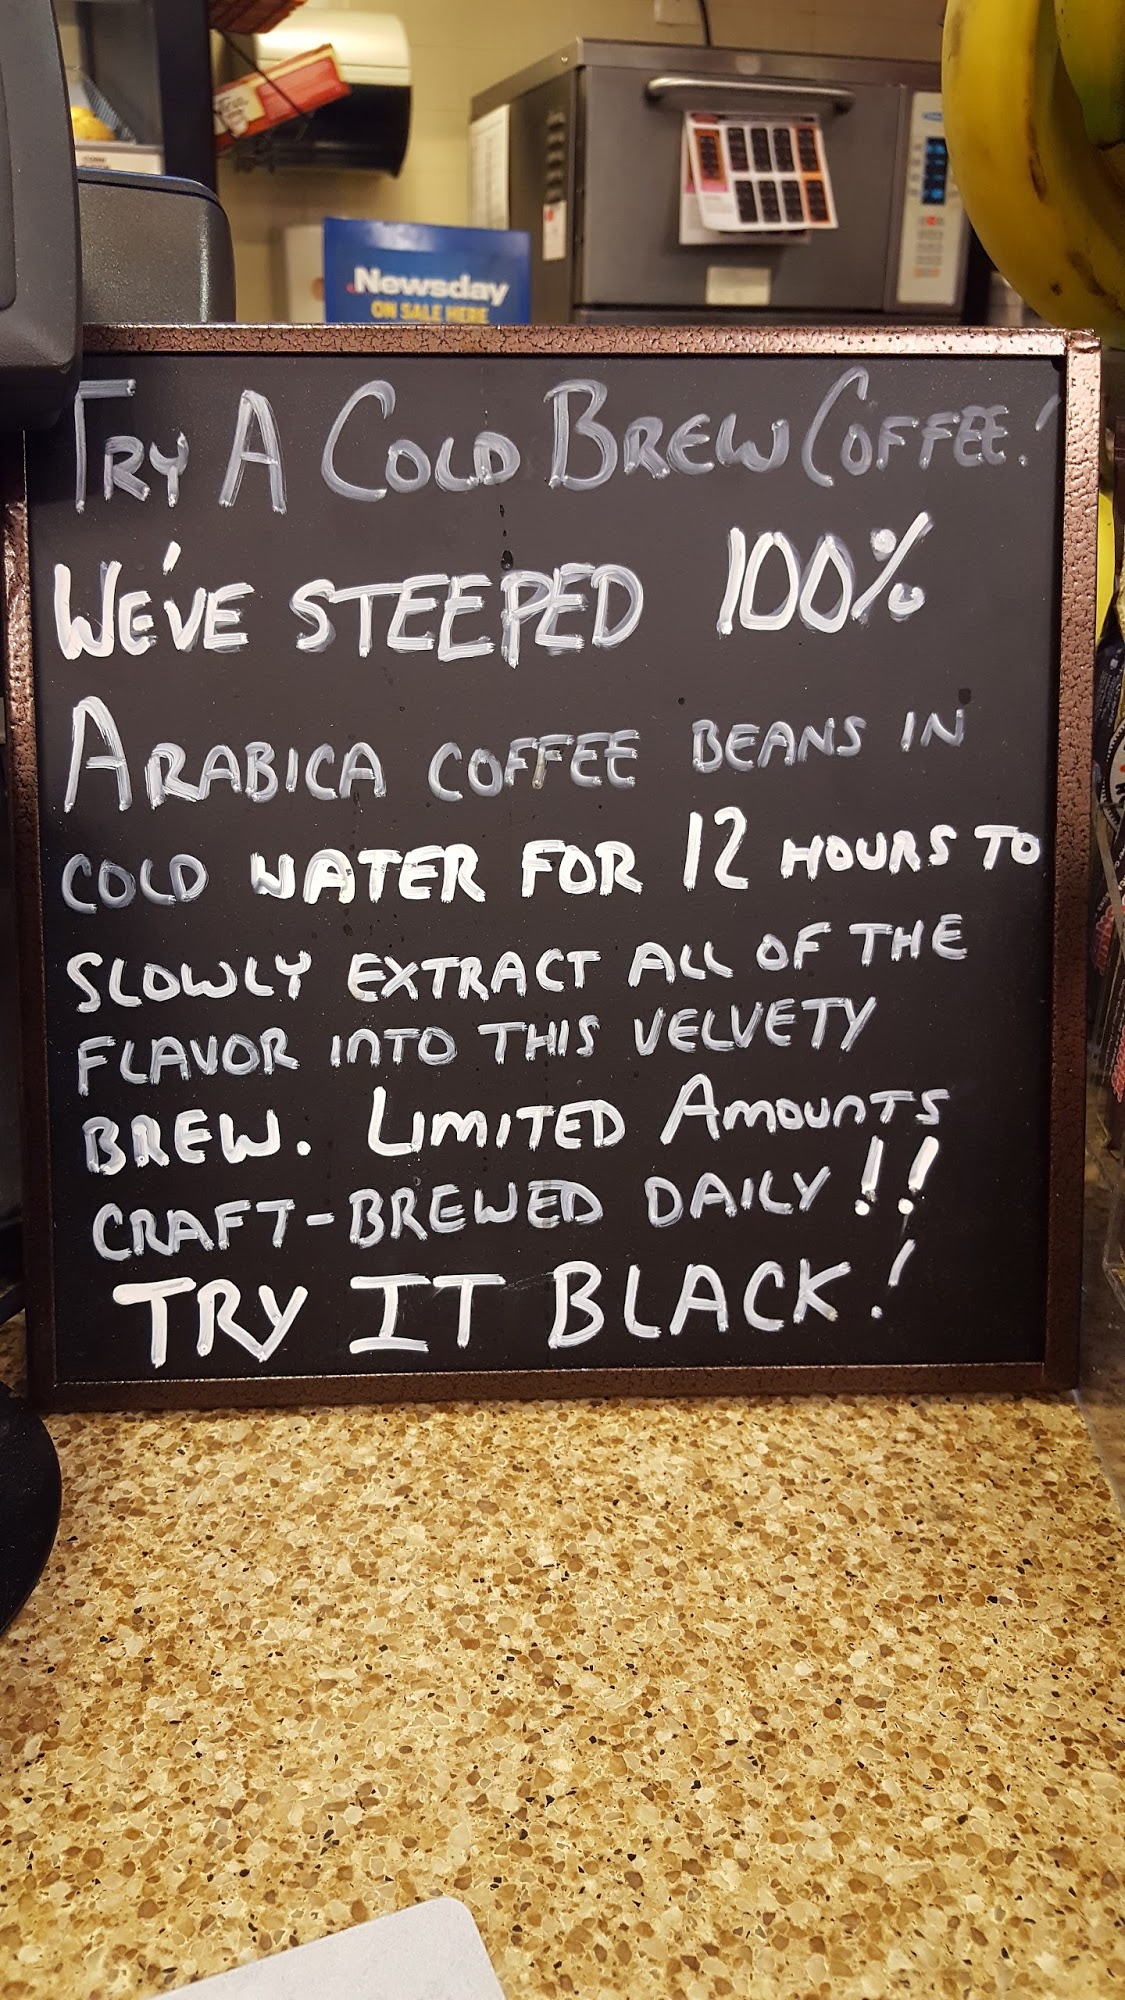 Newsday
ON SALE HERE
TRY A COLD BREW COFFEE!
WE'VE STEEPED 100%
ARABICA COFFEE BEANS IN
COLD WATER FOR 12 HOURS TO
SLOWLY EXTRACT ALL OF THE
FLAVOR INTO THIS VELVETY
BREW. LIMITED AMOUNTS
CRAFT-BREWED DAILY!!
TRY IT BLACK!